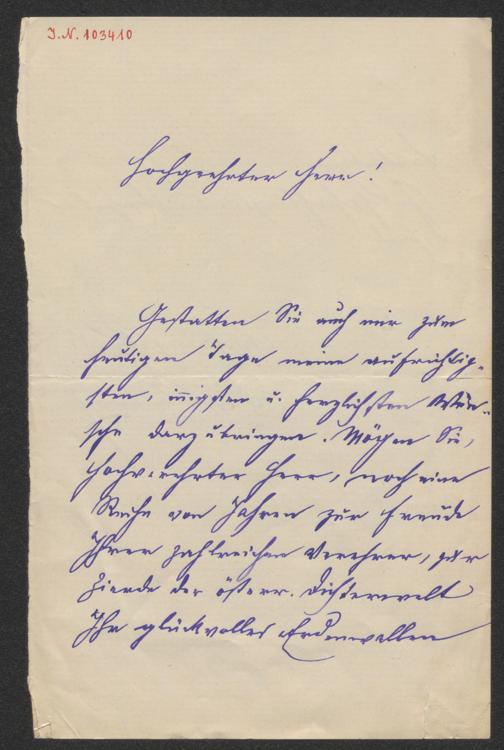 J.N. 103410
Hochgeehrter Herr!
Gestatten Sie auch mir zum
heutigen Tage meine aufrichtig-
sten, innigsten u. herzlichsten Wün-
sche darzubringen. Mögen Sie,
hochverehrter Herr, noch eine
Reihe von Jahren zur Freude
Ihrer zahlreichen Verehrer, zur
Zierde der österr. Dichterwelt
Ihr glückvolles Erdenwallen